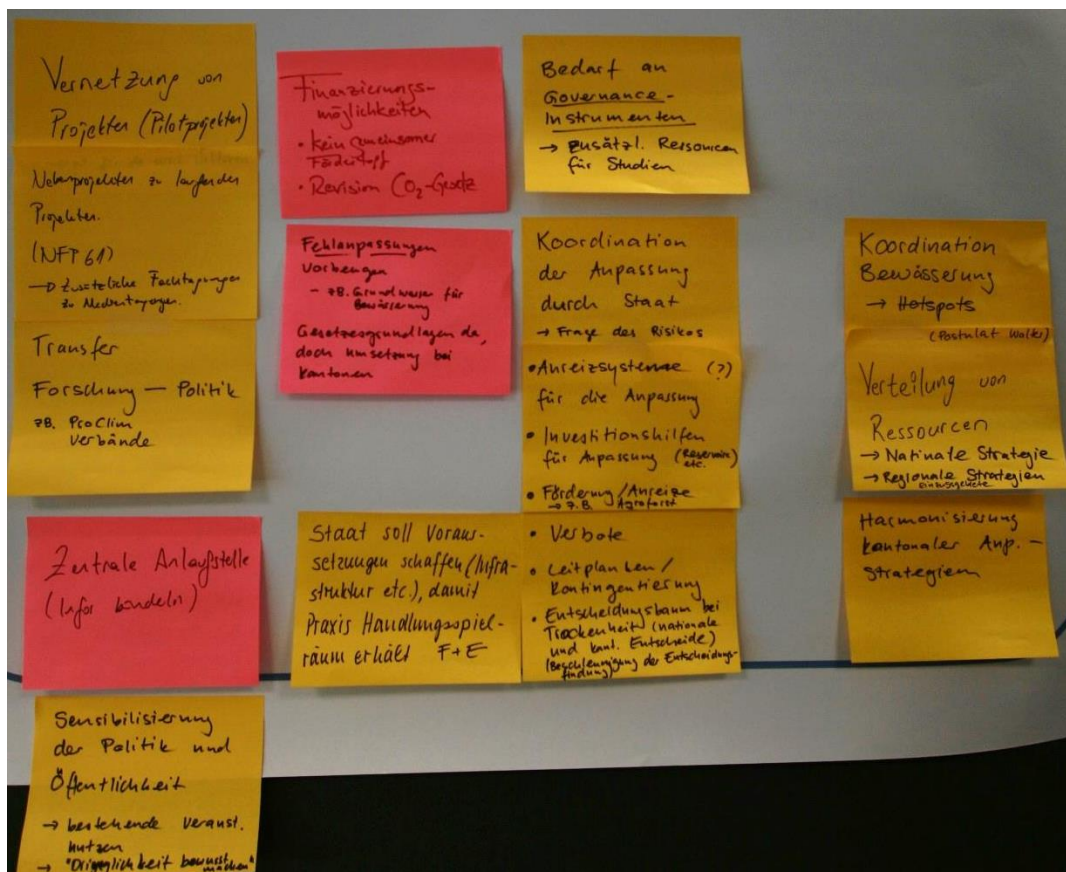 Vernetzung von
Projekten (Pilotprojekten)
Nebenprojekten zu laufenden
Projekten.
(NFP 61)
→ Zusätzliche Fachtagungen
zu
Transfer
Forschung — Politik
zB. ProClim
Verbände
Zentrale Anlaufstelle
(Infos bündeln)
Sensibilisierung
der Politik und
Öffentlichkeit
→ bestehende Veranst.
nutzen
→ "Dringlichkeit bewusst
machen"
Finanzierungs-
möglichkeiten
• kein gemeinsamer
Fördertopf
• Revision CO₂-Gesetz
Fehlanpassungen
vorbeugen
- zB. Grundwasser für
Bewässerung
Gesetzesgrundlagen da,
doch Umsetzung bei
Kantonen
Staat soll Voraus-
setzungen schaffen (Infra-
struktur etc.), damit
Praxis Handlungsspiel-
raum erhält F+E
Bedarf an
Governance-
Instrumenten
→ zusätzl. Ressourcen
für Studien
Koordination
der Anpassung
durch Staat
→ Frage des Risikos
• Anreizsysteme (?)
für die Anpassung
• Investitionshilfen
für Anpassung (Reservoire)
etc.
• Förderung/Anreize
→ z.B. Agroforst
• Verbote
• Leitplanken/
Kontingentierung
• Entscheidungsbaum bei
Trockenheit (nationale
und kant. Entscheide)
(Beschleunigung der Entscheidungs-
findung)
Koordination
Bewässerung
→ Hotspots
(Postulat Walter)
Verteilung von
Ressourcen
→ Natinale Strategie
→ Regionale Strategien
Harmonisierung
kantonaler Anp.-
Strategien